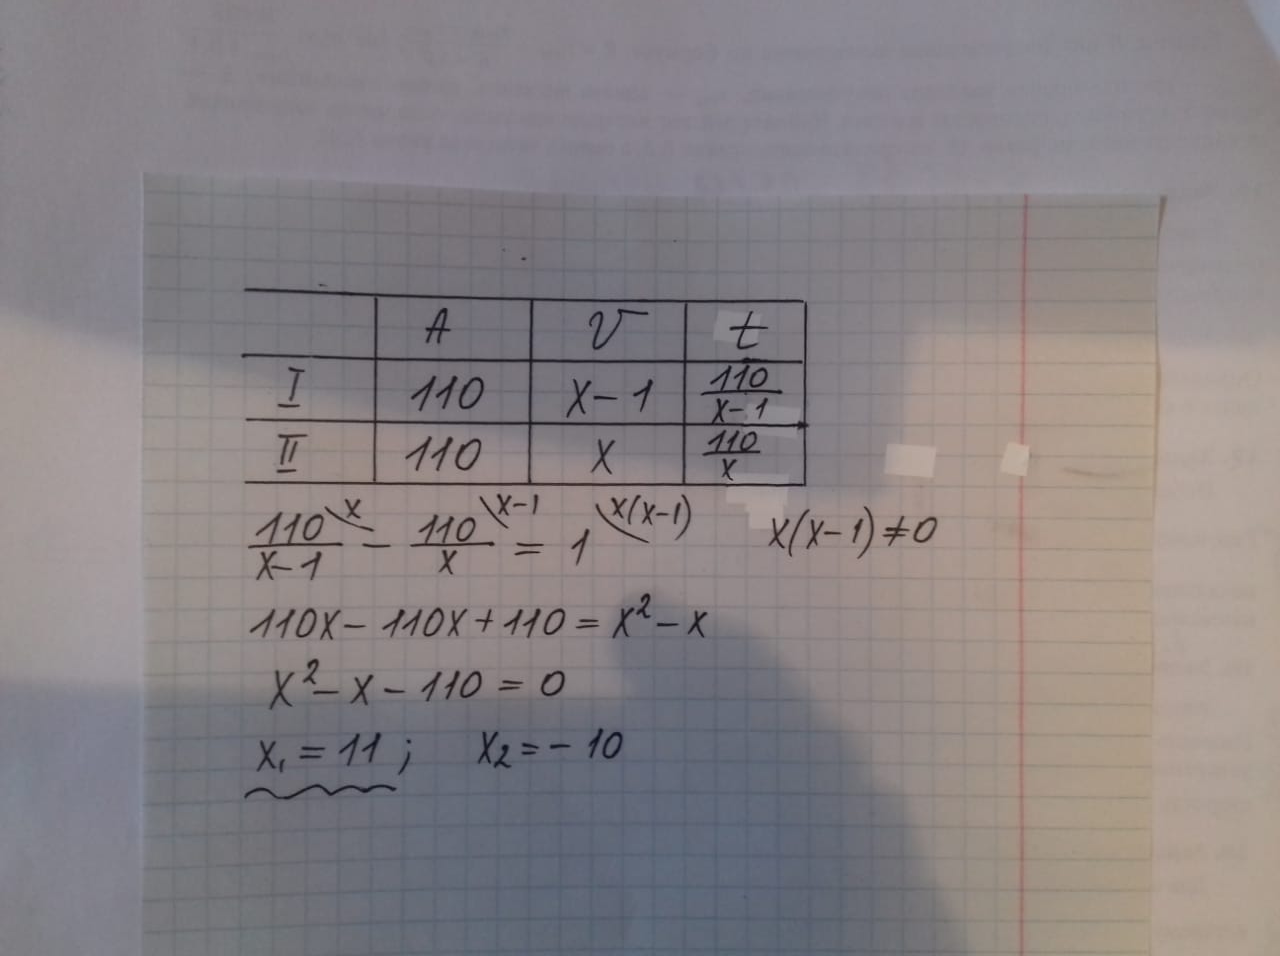 A V t
I 110 x-1 110/(x-1)
II 110 x 110/x
110/(x-1) \x - 110/x \x-1 = 1 \x(x-1) x(x-1)≠0
110x - 110x + 110 = x² - x
x² - x - 110 = 0
x₁ = 11 ; x₂ = - 10